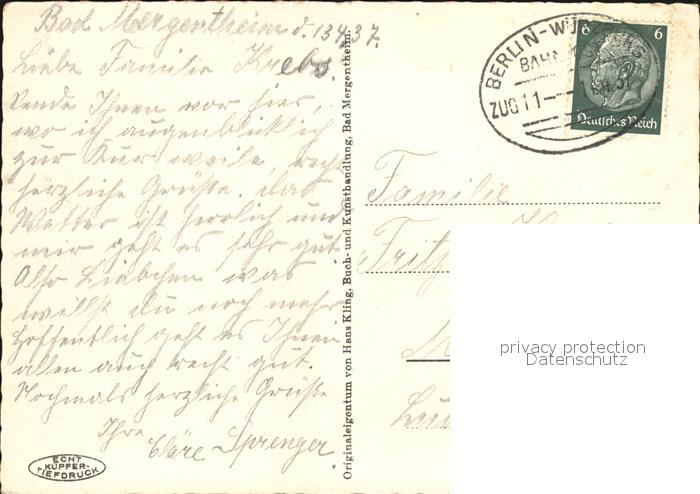 Bad Mergentheim d. 13.4.37.
Liebe Familie Krebs.
Sende Ihnen von hier,
wo ich augenblicklich
zur Kur weile, recht
herzliche Grüße. Das
Wetter ist herrlich und
mir geht es sehr gut.
Also Liebchen was
willst du noch mehr
Hoffentlich geht es Ihnen
allen auch recht gut.
Nochmals herzliche Grüße
Ihre
Cläre Sprenger.
ECHT
KUPFER-
TIEFDRUCK
Originaleigentum von Hans Kling, Buch- und Kunsthandlung, Bad Mergentheim.
BERLIN-WÜ
BAHN
ZUG 11
6 6
Deutsches Reich
Familie
Fritz
privacy protection
Datenschutz